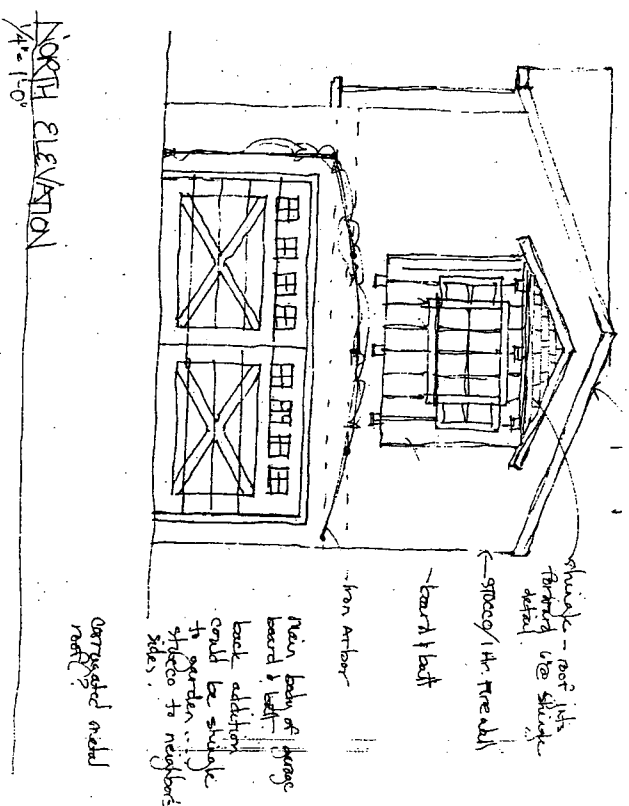 shingle - roof into
forward
detail
shingle
← STUCCO/1 Hr. Fire wall
- board & batt
Iron Arbor
Main body of garage
board & batt
back addition
could be shingle
to garden...
stucco to neighbors
sides.
corrugated metal
roof?
NORTH ELEVATION
1/4" = 1'-0"